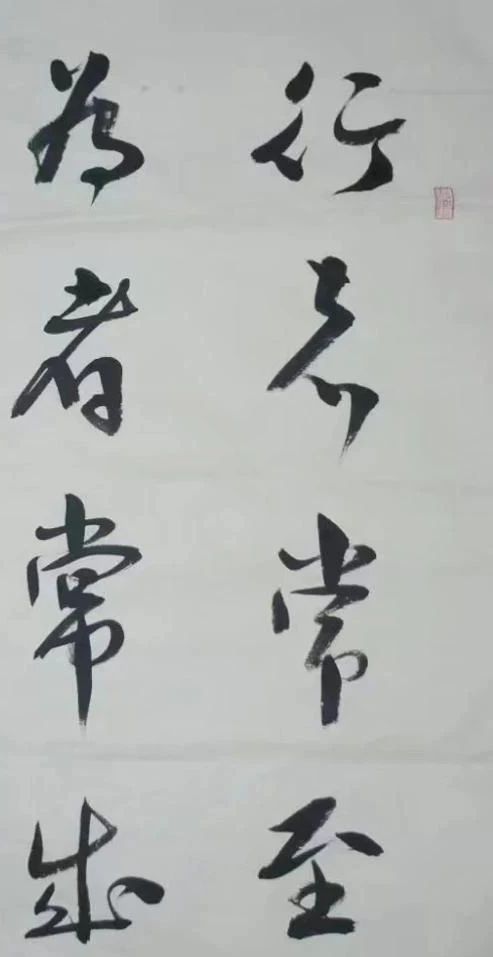 行者常至
為者常成